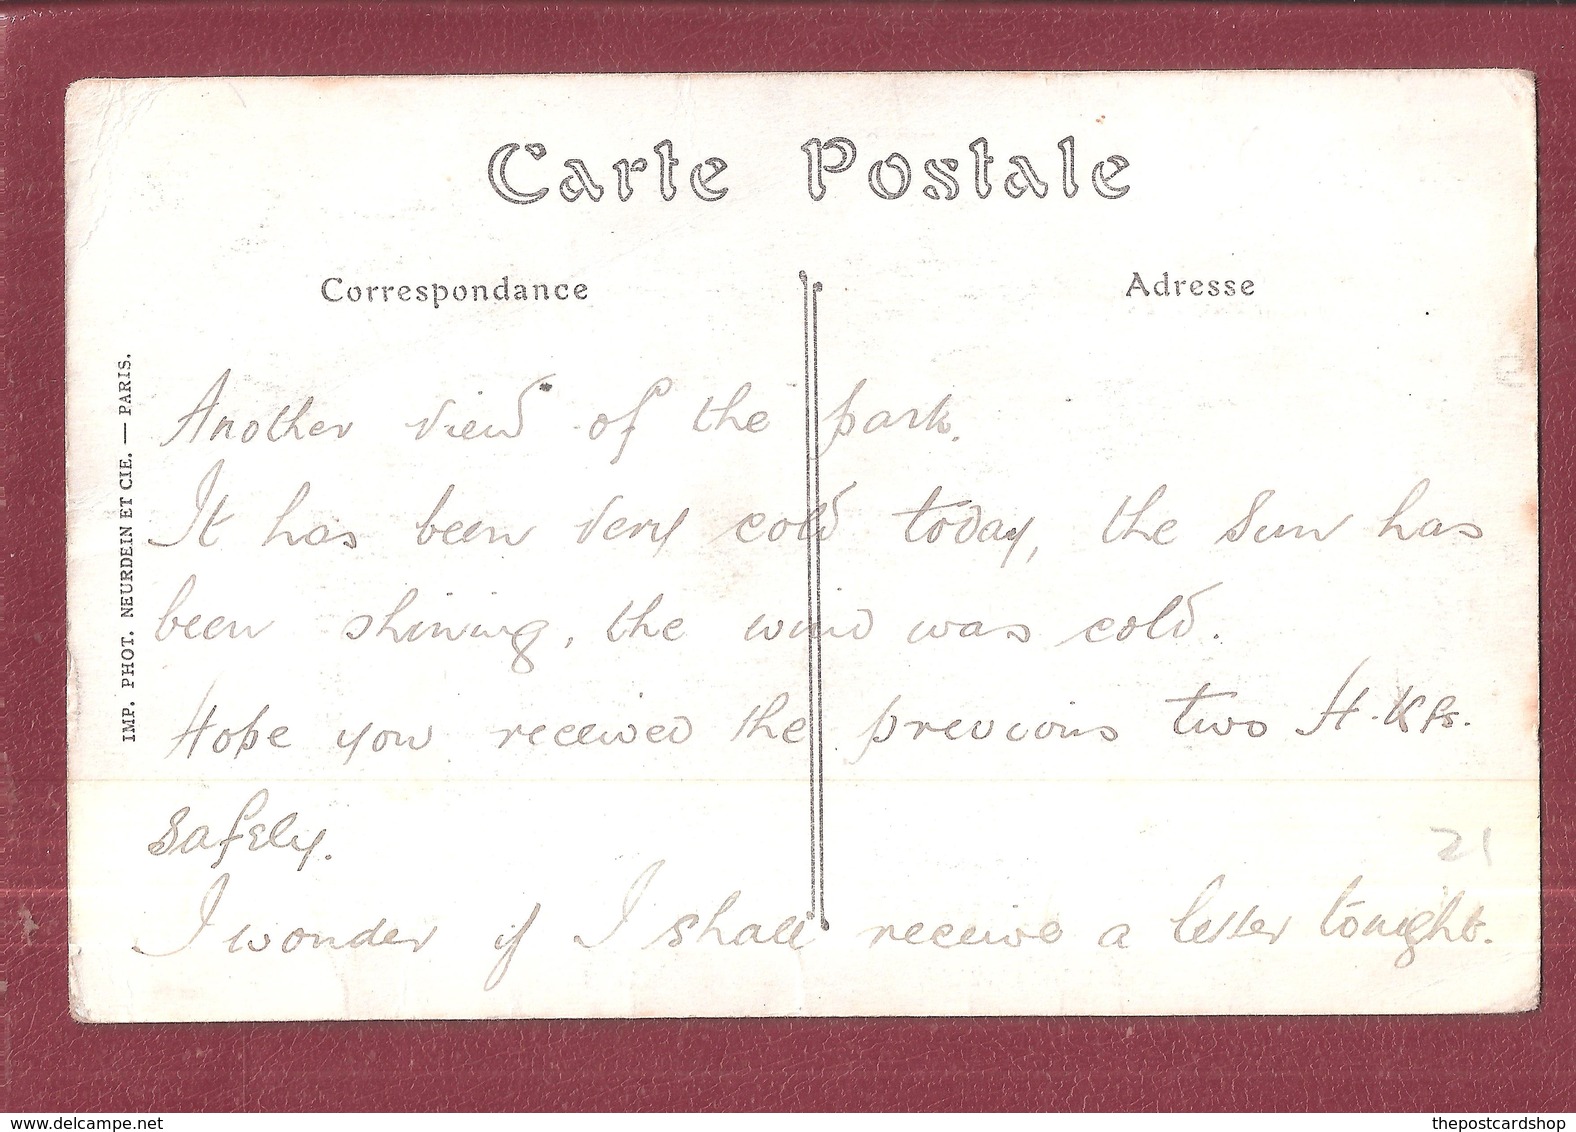 Carte Postale
Correspondance
Adresse
IMP. PHOT. NEURDEIN ET CIE. — PARIS.
Another view of the park.
It has been very cold today, the sun has
been shining, the wind was cold.
Hope you received the previous two H.Kfs.
safely.
I wonder if I shall receive a letter tonight.
21
www.delcampe.net
thepostcardshop